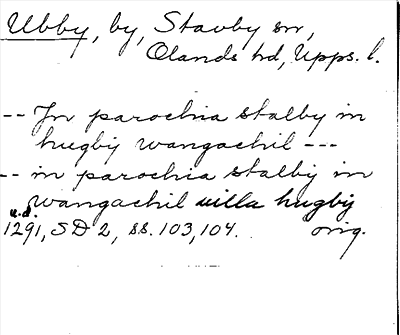 Ubby, by, Stavby sn,
Olands hd, Upps. l.
-- In parochia stalby in
hugbij wangachil ---
-- in parochia stalbij in
wangachil villa hugbij
u.d.
1291, SD 2, ss. 103, 104. orig.